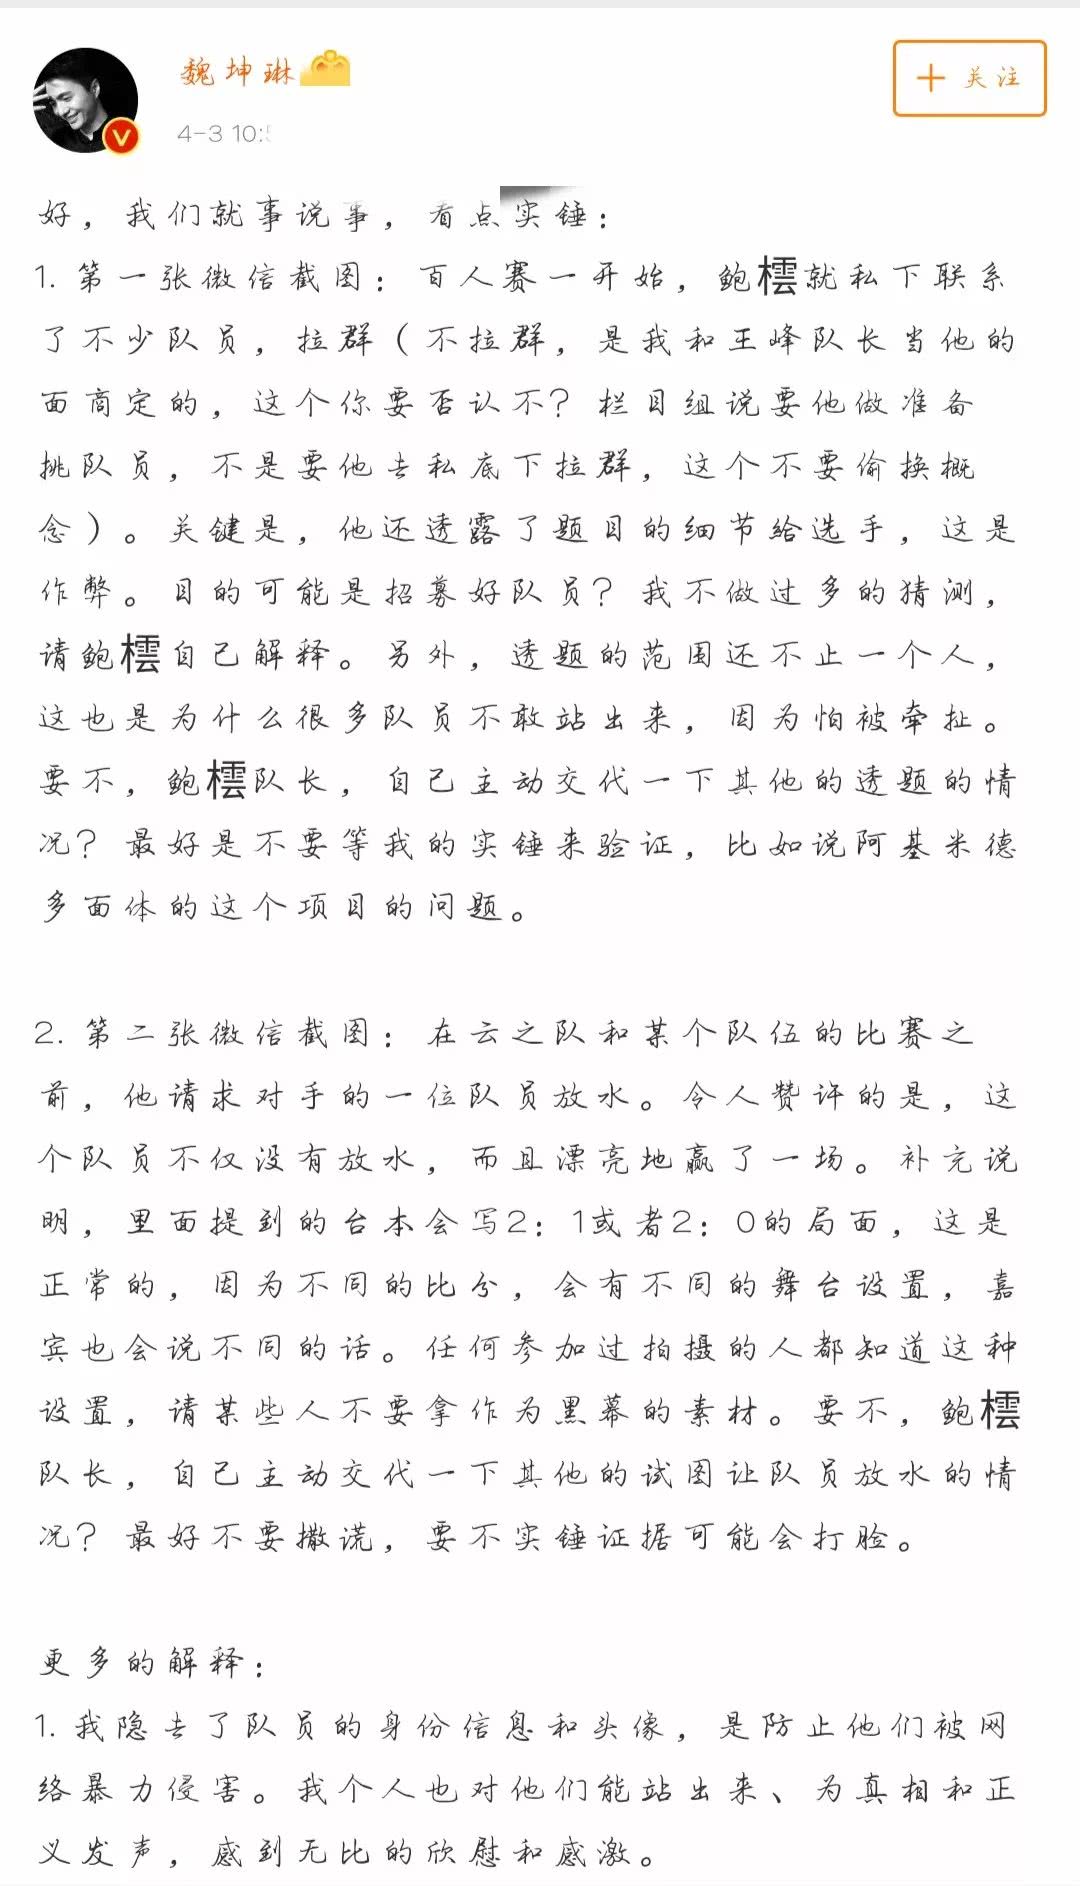 魏坤琳
关注
4-3 10:5
好，我们就事说事，看点实锤：
1. 第一张微信截图：百人赛一开始，鲍橒就私下联系
了不少队员，拉群（不拉群，是我和王峰队长当他的
面商定的，这个你要否认不？栏目组说要他做准备
挑队员，不是要他去私底下拉群，这个不要偷换概
念）。关键是，他还透露了题目的细节给选手，这是
作弊。目的可能是招募好队员？我不做过多的猜测，
请鲍橒自己解释。另外，透题的范围还不止一个人，
这也是为什么很多队员不敢站出来，因为怕被牵扯。
要不，鲍橒队长，自己主动交代一下其他的透题的情
况？最好是不要等我的实锤来验证，比如说阿基米德
多面体的这个项目的问题。
2. 第二张微信截图：在云之队和某个队伍的比赛之
前，他请求对手的一位队员放水。令人赞许的是，这
个队员不仅没有放水，而且漂亮地赢了一场。补充说
明，里面提到的台本会写2：1或者2：0的局面，这是
正常的，因为不同的比分，会有不同的舞台设置，嘉
宾也会说不同的话。任何参加过拍摄的人都知道这种
设置，请某些人不要拿作为黑幕的素材。要不，鲍橒
队长，自己主动交代一下其他的试图让队员放水的情
况？最好不要撒谎，要不实锤证据可能会打脸。
更多的解释：
1. 我隐去了队员的身份信息和头像，是防止他们被网
络暴力侵害。我个人也对他们能站出来、为真相和正
义发声，感到无比的欣慰和感激。